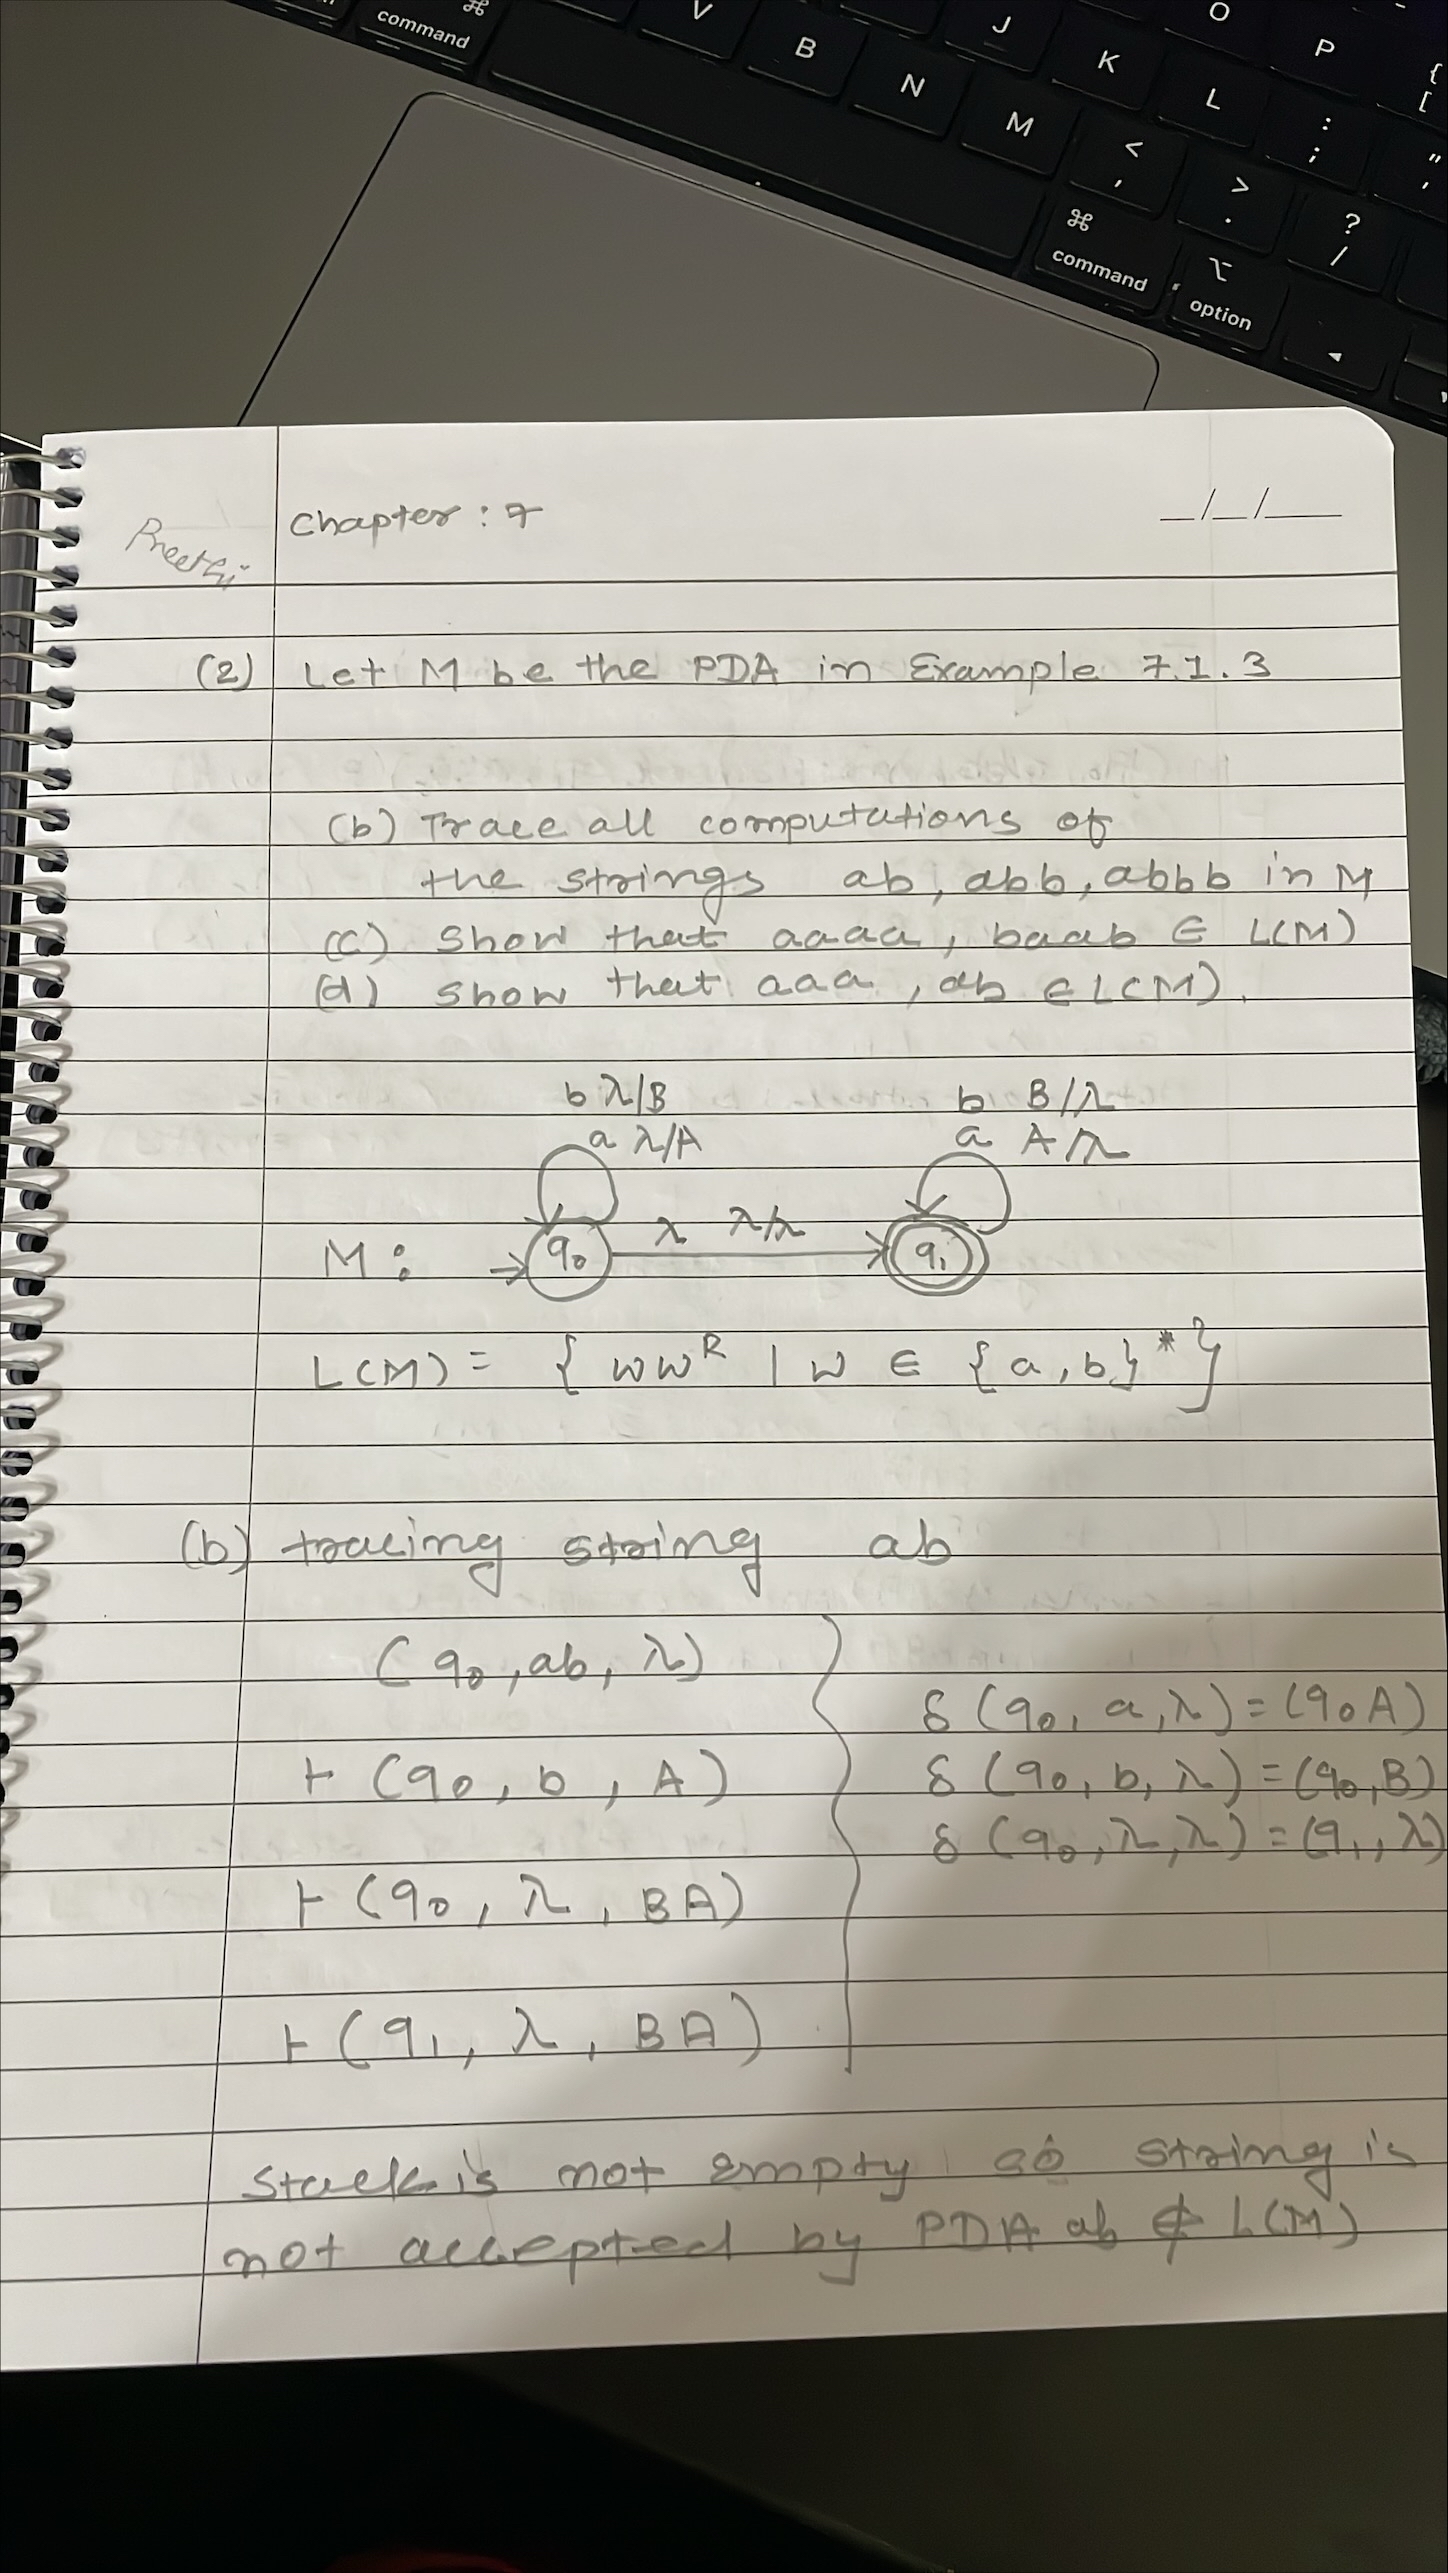 command
V
B
N
M
J
K
L
O
P
{
[
:
;
"
'
<
,
>
.
?
/
⌘
command
⌥
option
◂
Chapter : 7
_/_/__
Preethi
(2) Let M be the PDA in Example 7.1.3
(b) Trace all computations of
the strings ab, abb, abbb in M
(c) Show that aaaa, baab ∈ L(M)
(d) Show that aaa, ab ∈ L(M).
b λ/B
a λ/A
b B/λ
a A/λ
M : q0 λ λ/λ q1
L(M) = { wwᴿ | w ∈ {a,b}* }
(b) tracing string ab
(q0, ab, λ)
⊢ (q0, b, A)
⊢ (q0, λ, BA)
⊢ (q1, λ, BA)
δ (q0, a, λ) = (q0 A)
δ (q0, b, λ) = (q0, B)
δ (q0, λ, λ) = (q1, λ)
Stack is not empty so string is
not accepted by PDA ab ∉ L(M)